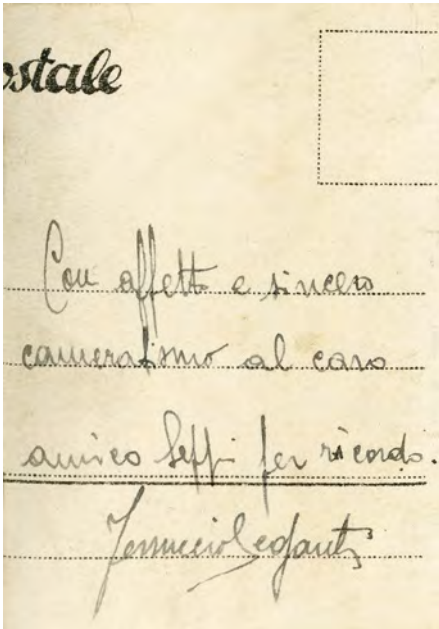 ostale
Con affetto e sincero
cameratismo al caro
amico Seppi per ricordo.
Ferruccio